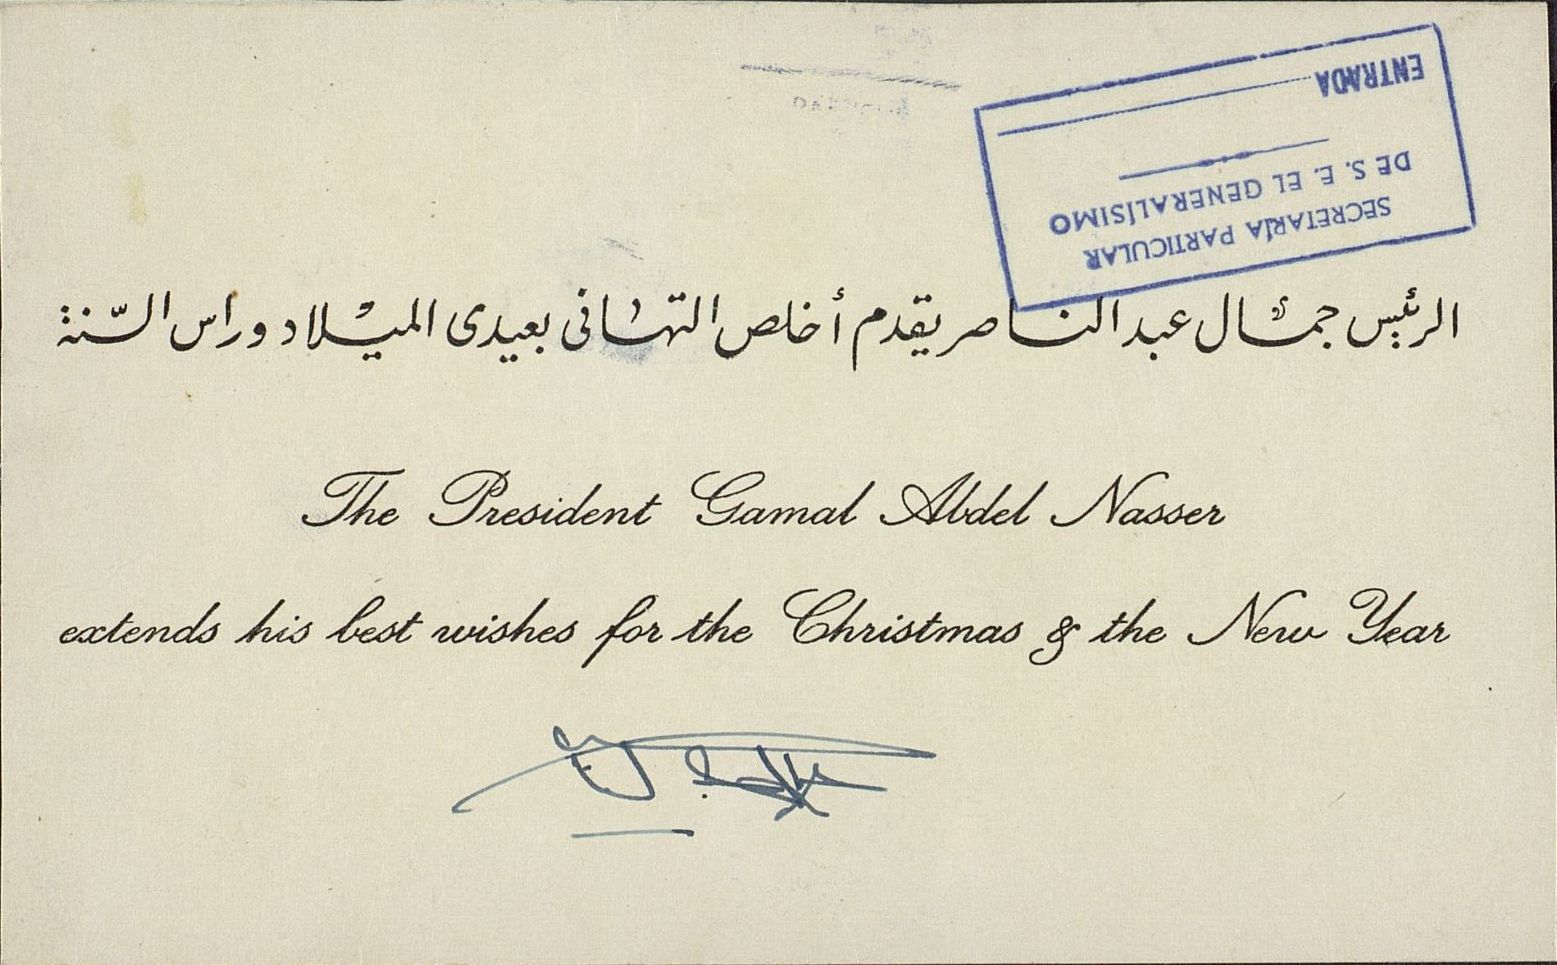 SECRETARÍA PARTICULAR
DE S. E. EL GENERALÍSIMO
ENTRADA
الرئيس جمال عبد الناصر يقدم أخلص التهانى بعيدى الميلاد وراس السّنة
The President Gamal Abdel Nasser
extends his best wishes for the Christmas & the New Year